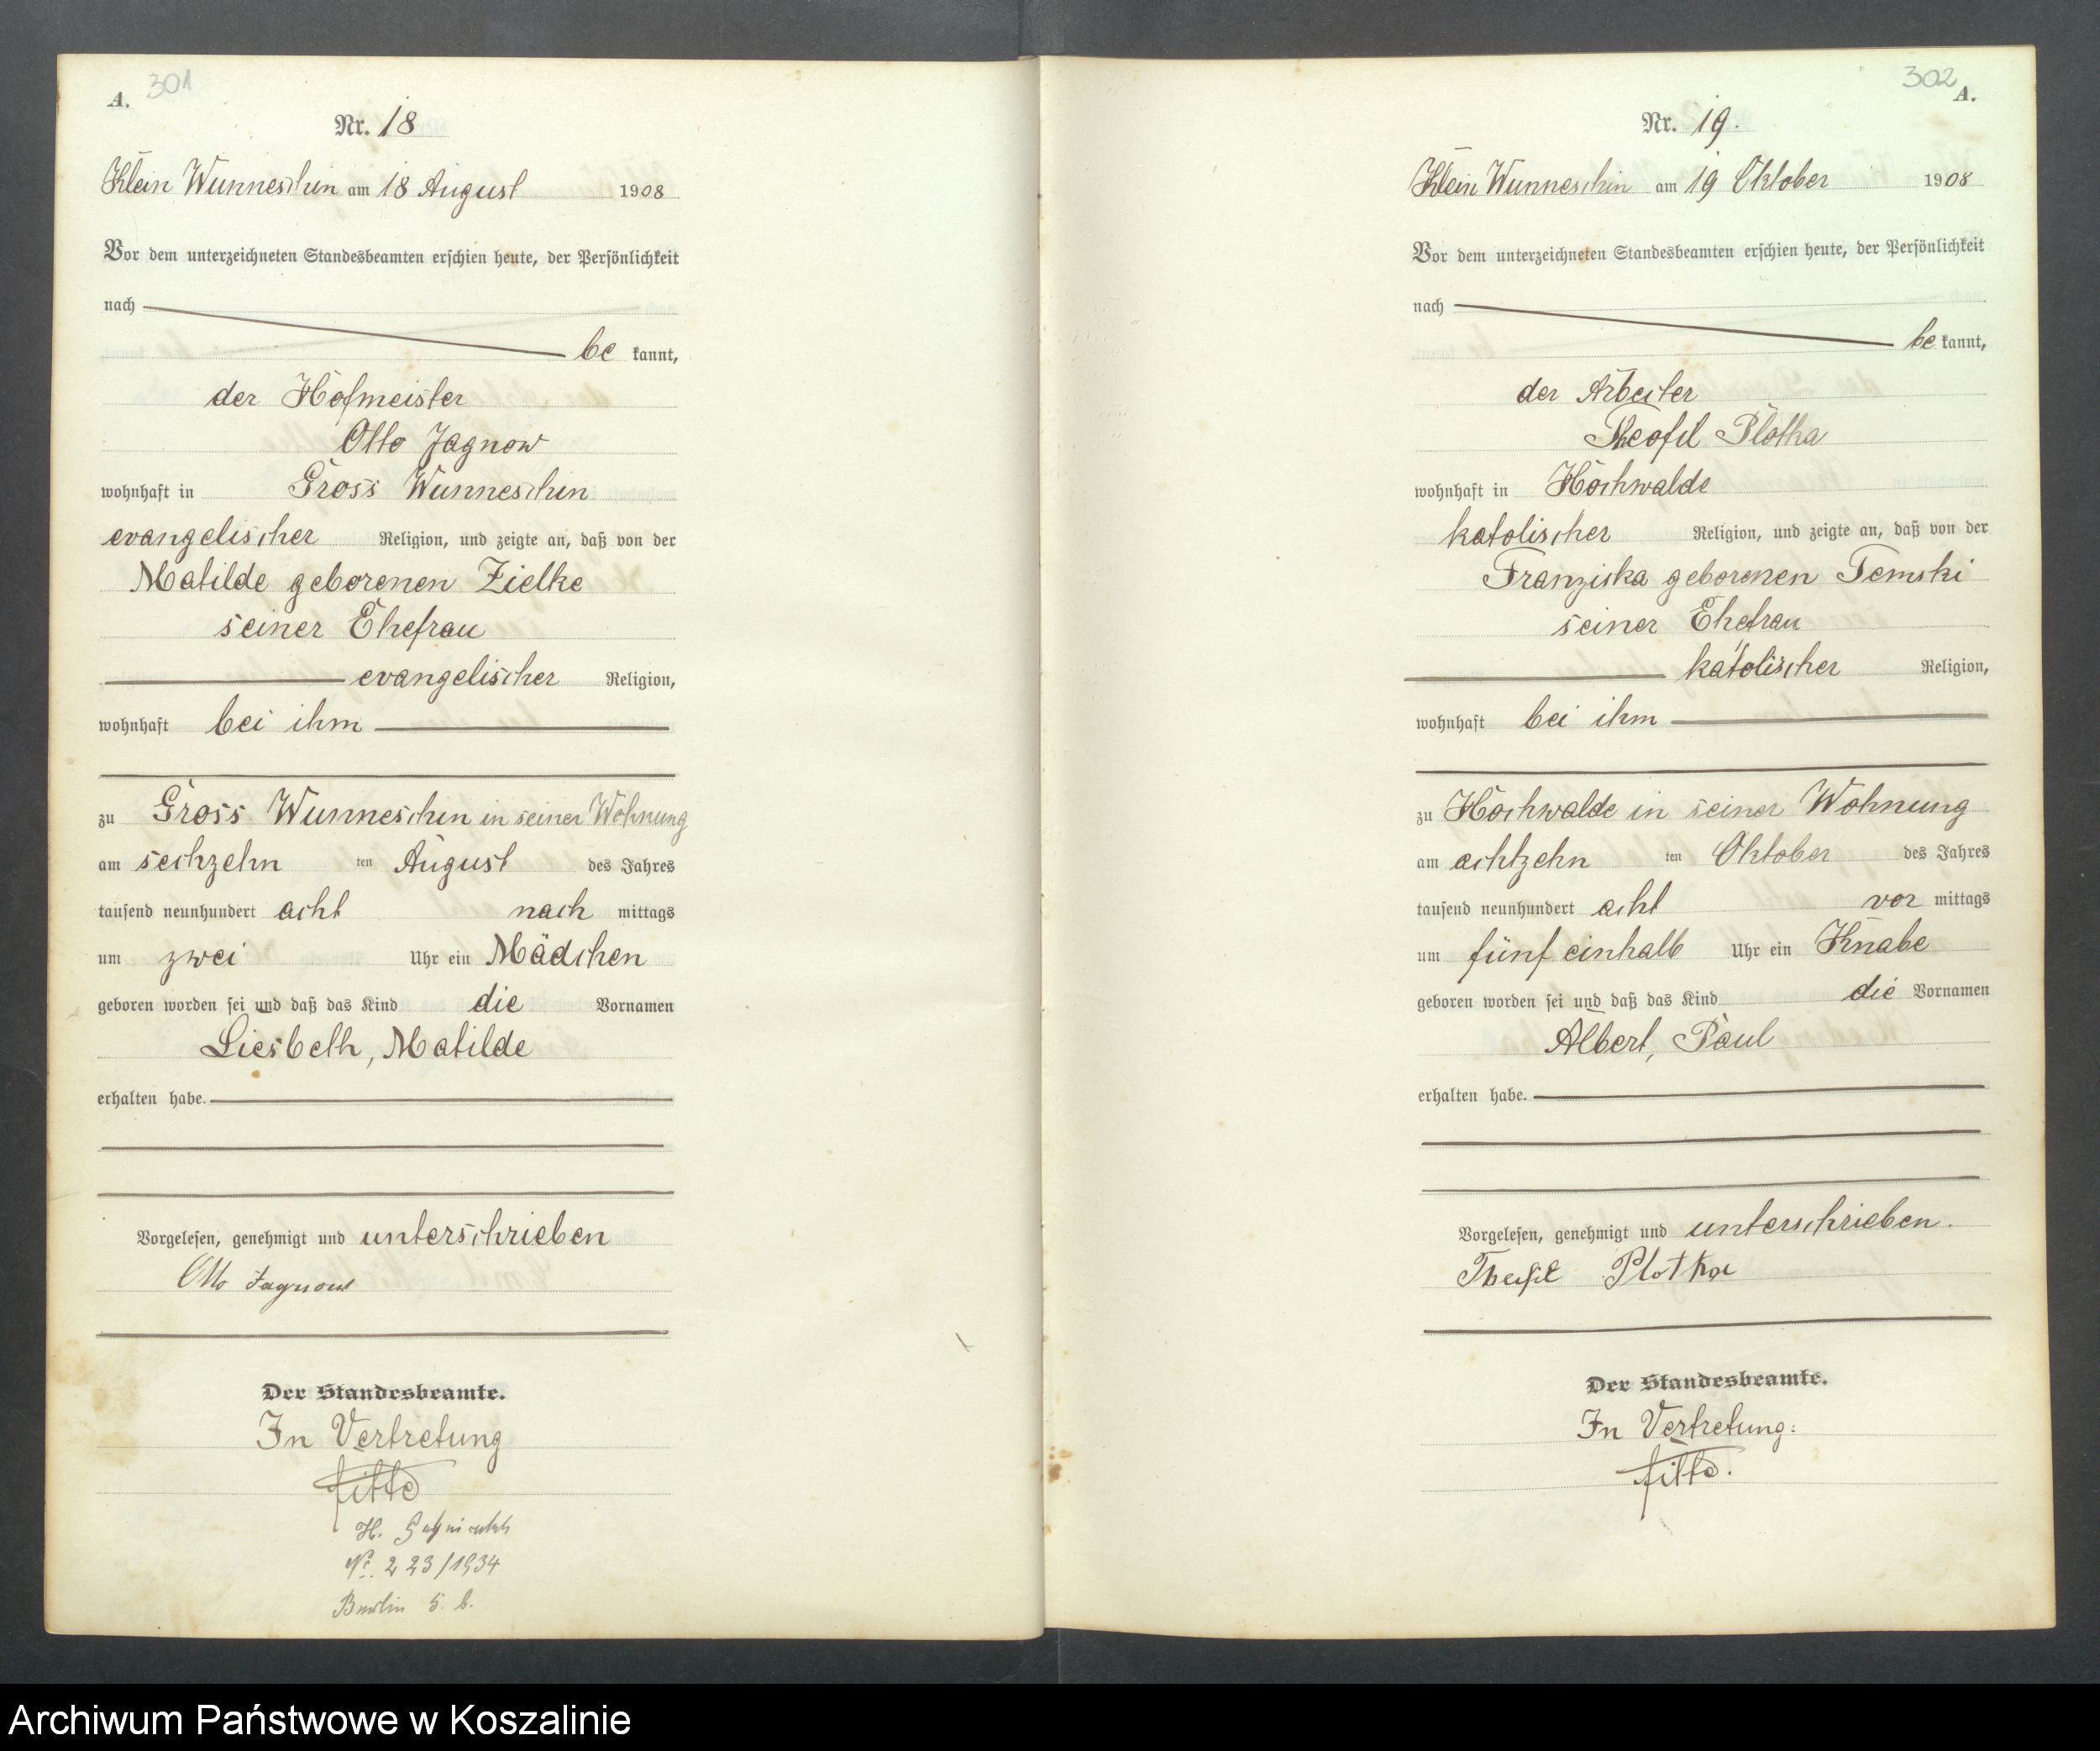 A.
301
Nr. 18
Klein Wunneschin am 18 August 1908
Vor dem unterzeichneten Standesbeamten erschien heute, der Persönlichkeit
nach
be kannt,
der Hofmeister
Otto Jagnow
wohnhaft in Gross Wunneschin
evangelischer Religion, und zeigte an, daß von der
Matilde geborenen Zielke
seiner Ehefrau
evangelischer Religion,
wohnhaft bei ihm
zu Gross Wunneschin in seiner Wohnung
am sechzehn ten August des Jahres
tausend neunhundert acht nach mittags
um zwei Uhr ein Mädchen
geboren worden sei und daß das Kind die Vornamen
Liesbeth, Matilde
erhalten habe.
Vorgelesen, genehmigt und unterschrieben
Otto Jagnow
Der Standesbeamte.
In Vertretung
H.
No. 223/1934
Berlin 5. b.
302
A.
Nr. 19.
Klein Wunneschin am 19 Oktober 1908
Vor dem unterzeichneten Standesbeamten erschien heute, der Persönlichkeit
nach
be kannt,
der Arbeiter
Theofil Plotka
wohnhaft in Hochwalde
katolischer Religion, und zeigte an, daß von der
Franziska geborenen Temski
seiner Ehefrau
katolischer Religion,
wohnhaft bei ihm
zu Hochwalde in seiner Wohnung
am achtzehn ten Oktober des Jahres
tausend neunhundert acht vor mittags
um fünf einhalb Uhr ein Knabe
geboren worden sei und daß das Kind die Vornamen
Albert, Paul
erhalten habe.
Vorgelesen, genehmigt und unterschrieben.
Theofil Plotka
Der Standesbeamte.
In Vertretung:
Archiwum Państwowe w Koszalinie